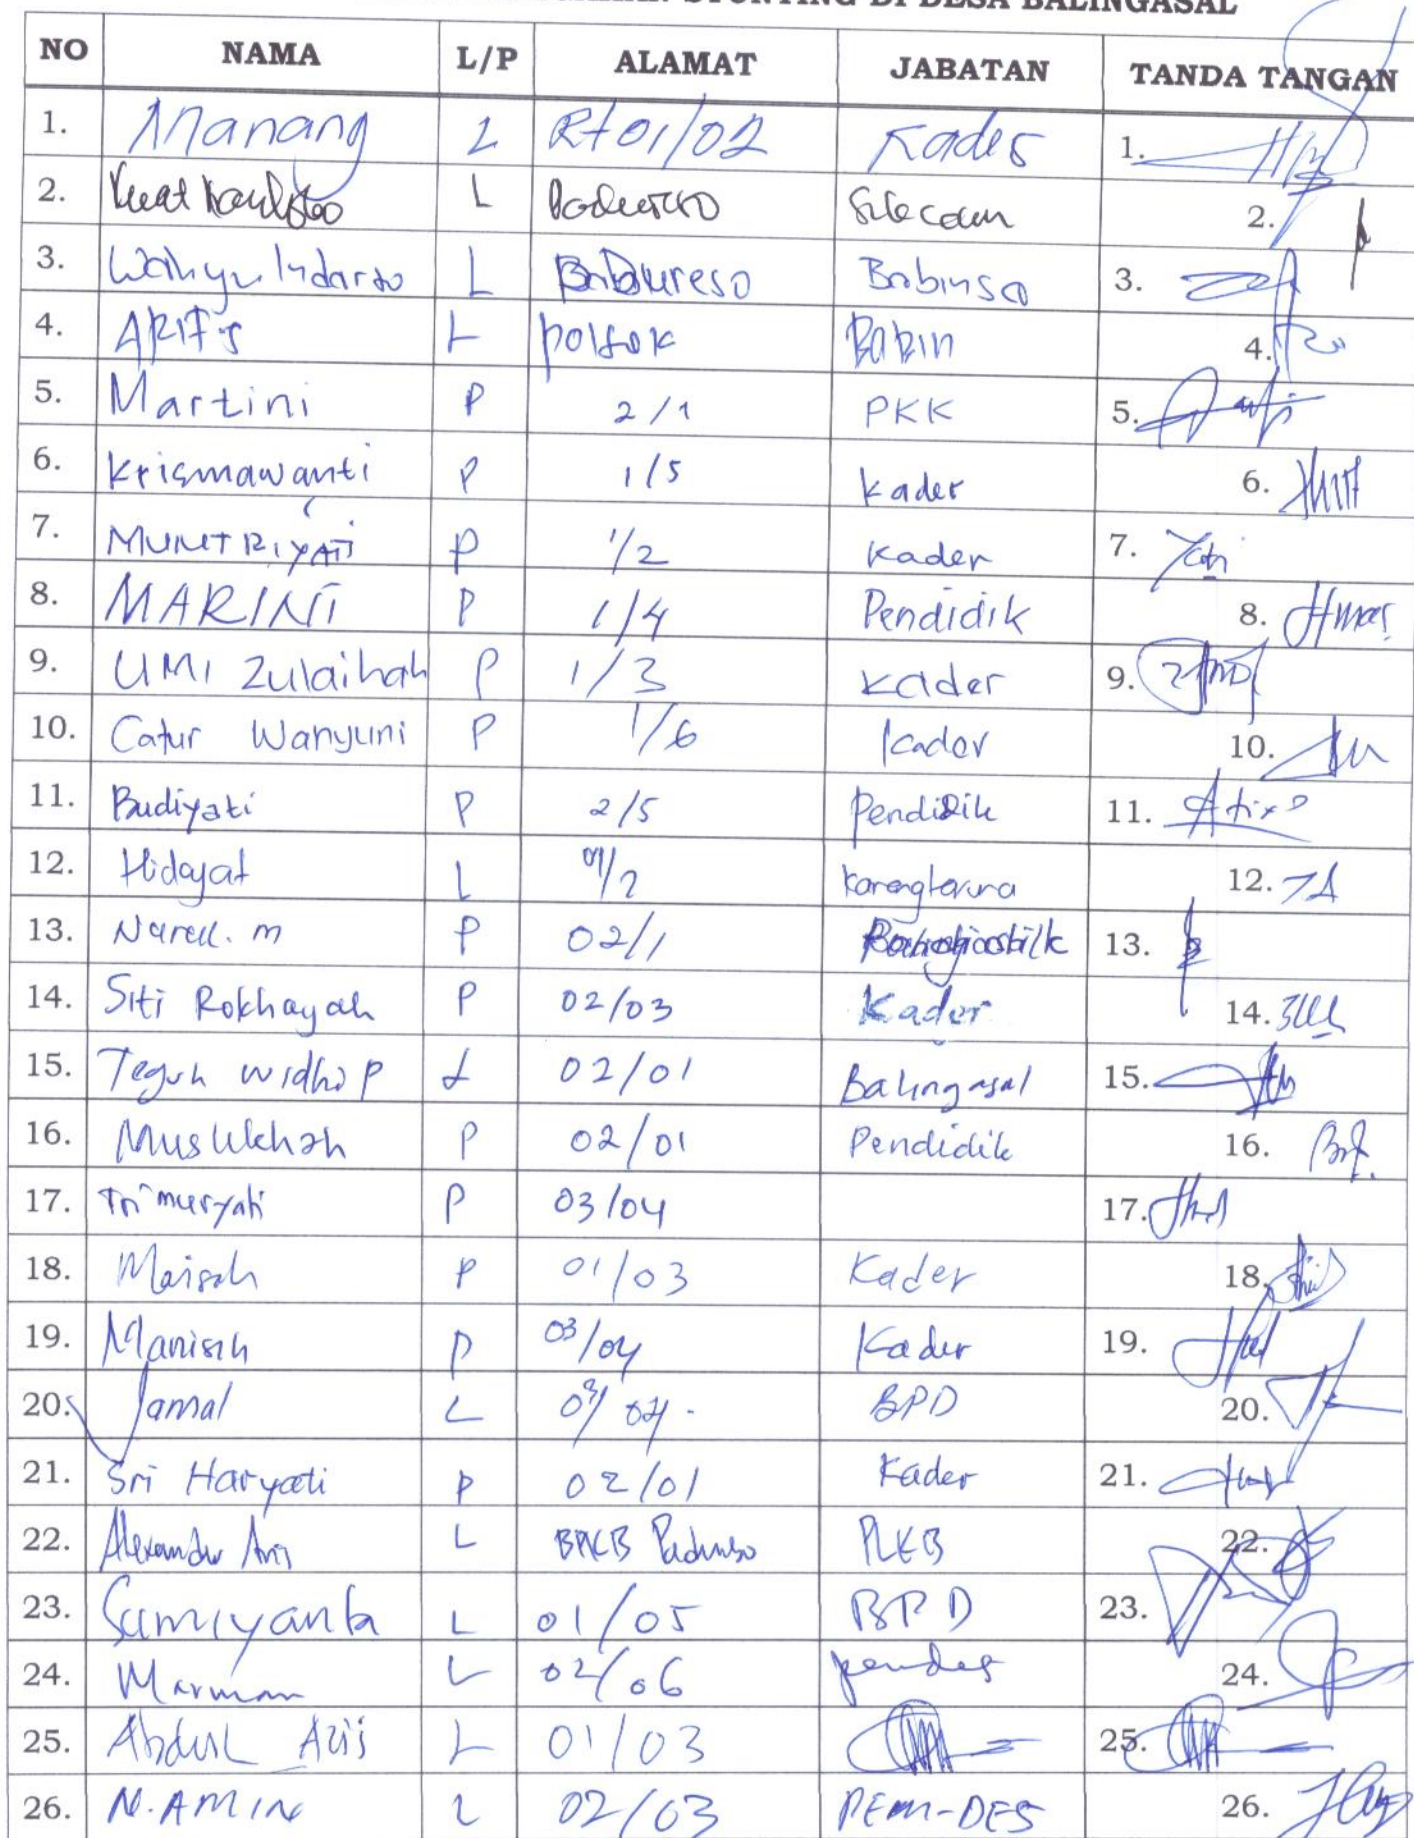 STUNTING DI DESA BALINGASAL
NO NAMA L/P ALAMAT JABATAN TANDA TANGAN
1. Manang L Rt 01/02 Kader 1.
2. L 2.
3. Wahyu Indarso L Babinsa 3.
4. ARIF S L polsek BABIN 4.
5. Martini P 2/1 PKK 5.
6. Krismawanti P 1/5 kader 6.
7. MUNTRIYATI P 1/2 kader 7. Yati
8. MARINI P 1/4 Pendidik 8.
9. UMI Zulaihah P 1/3 kader 9.
10. Catur Wahyuni P 1/6 kader 10.
11. Budiyati P 2/5 Pendidik 11.
12. Hidayat L 01/2 Karangtaruna 12.
13. P 02/1 13.
14. Siti Rokhayah P 02/03 Kader 14.
15. Teguh Widhi P L 02/01 Balingasal 15.
16. Muslikhah P 02/01 Pendidik 16.
17. Tri muryati P 03/04 17.
18. Maisah P 01/03 Kader 18.
19. Manisah P 03/04 Kader 19.
20. Jamal L BPD 20.
21. Sri Haryati P 02/01 Kader 21.
22. Alexander L PLKB 22.
23. Sumiyanta L 01/05 BPD 23.
24. Marman L 02/06 24.
25. Abdul Azis L 01/03 25.
26. N. AMIN L 02/03 PEM-DES 26.